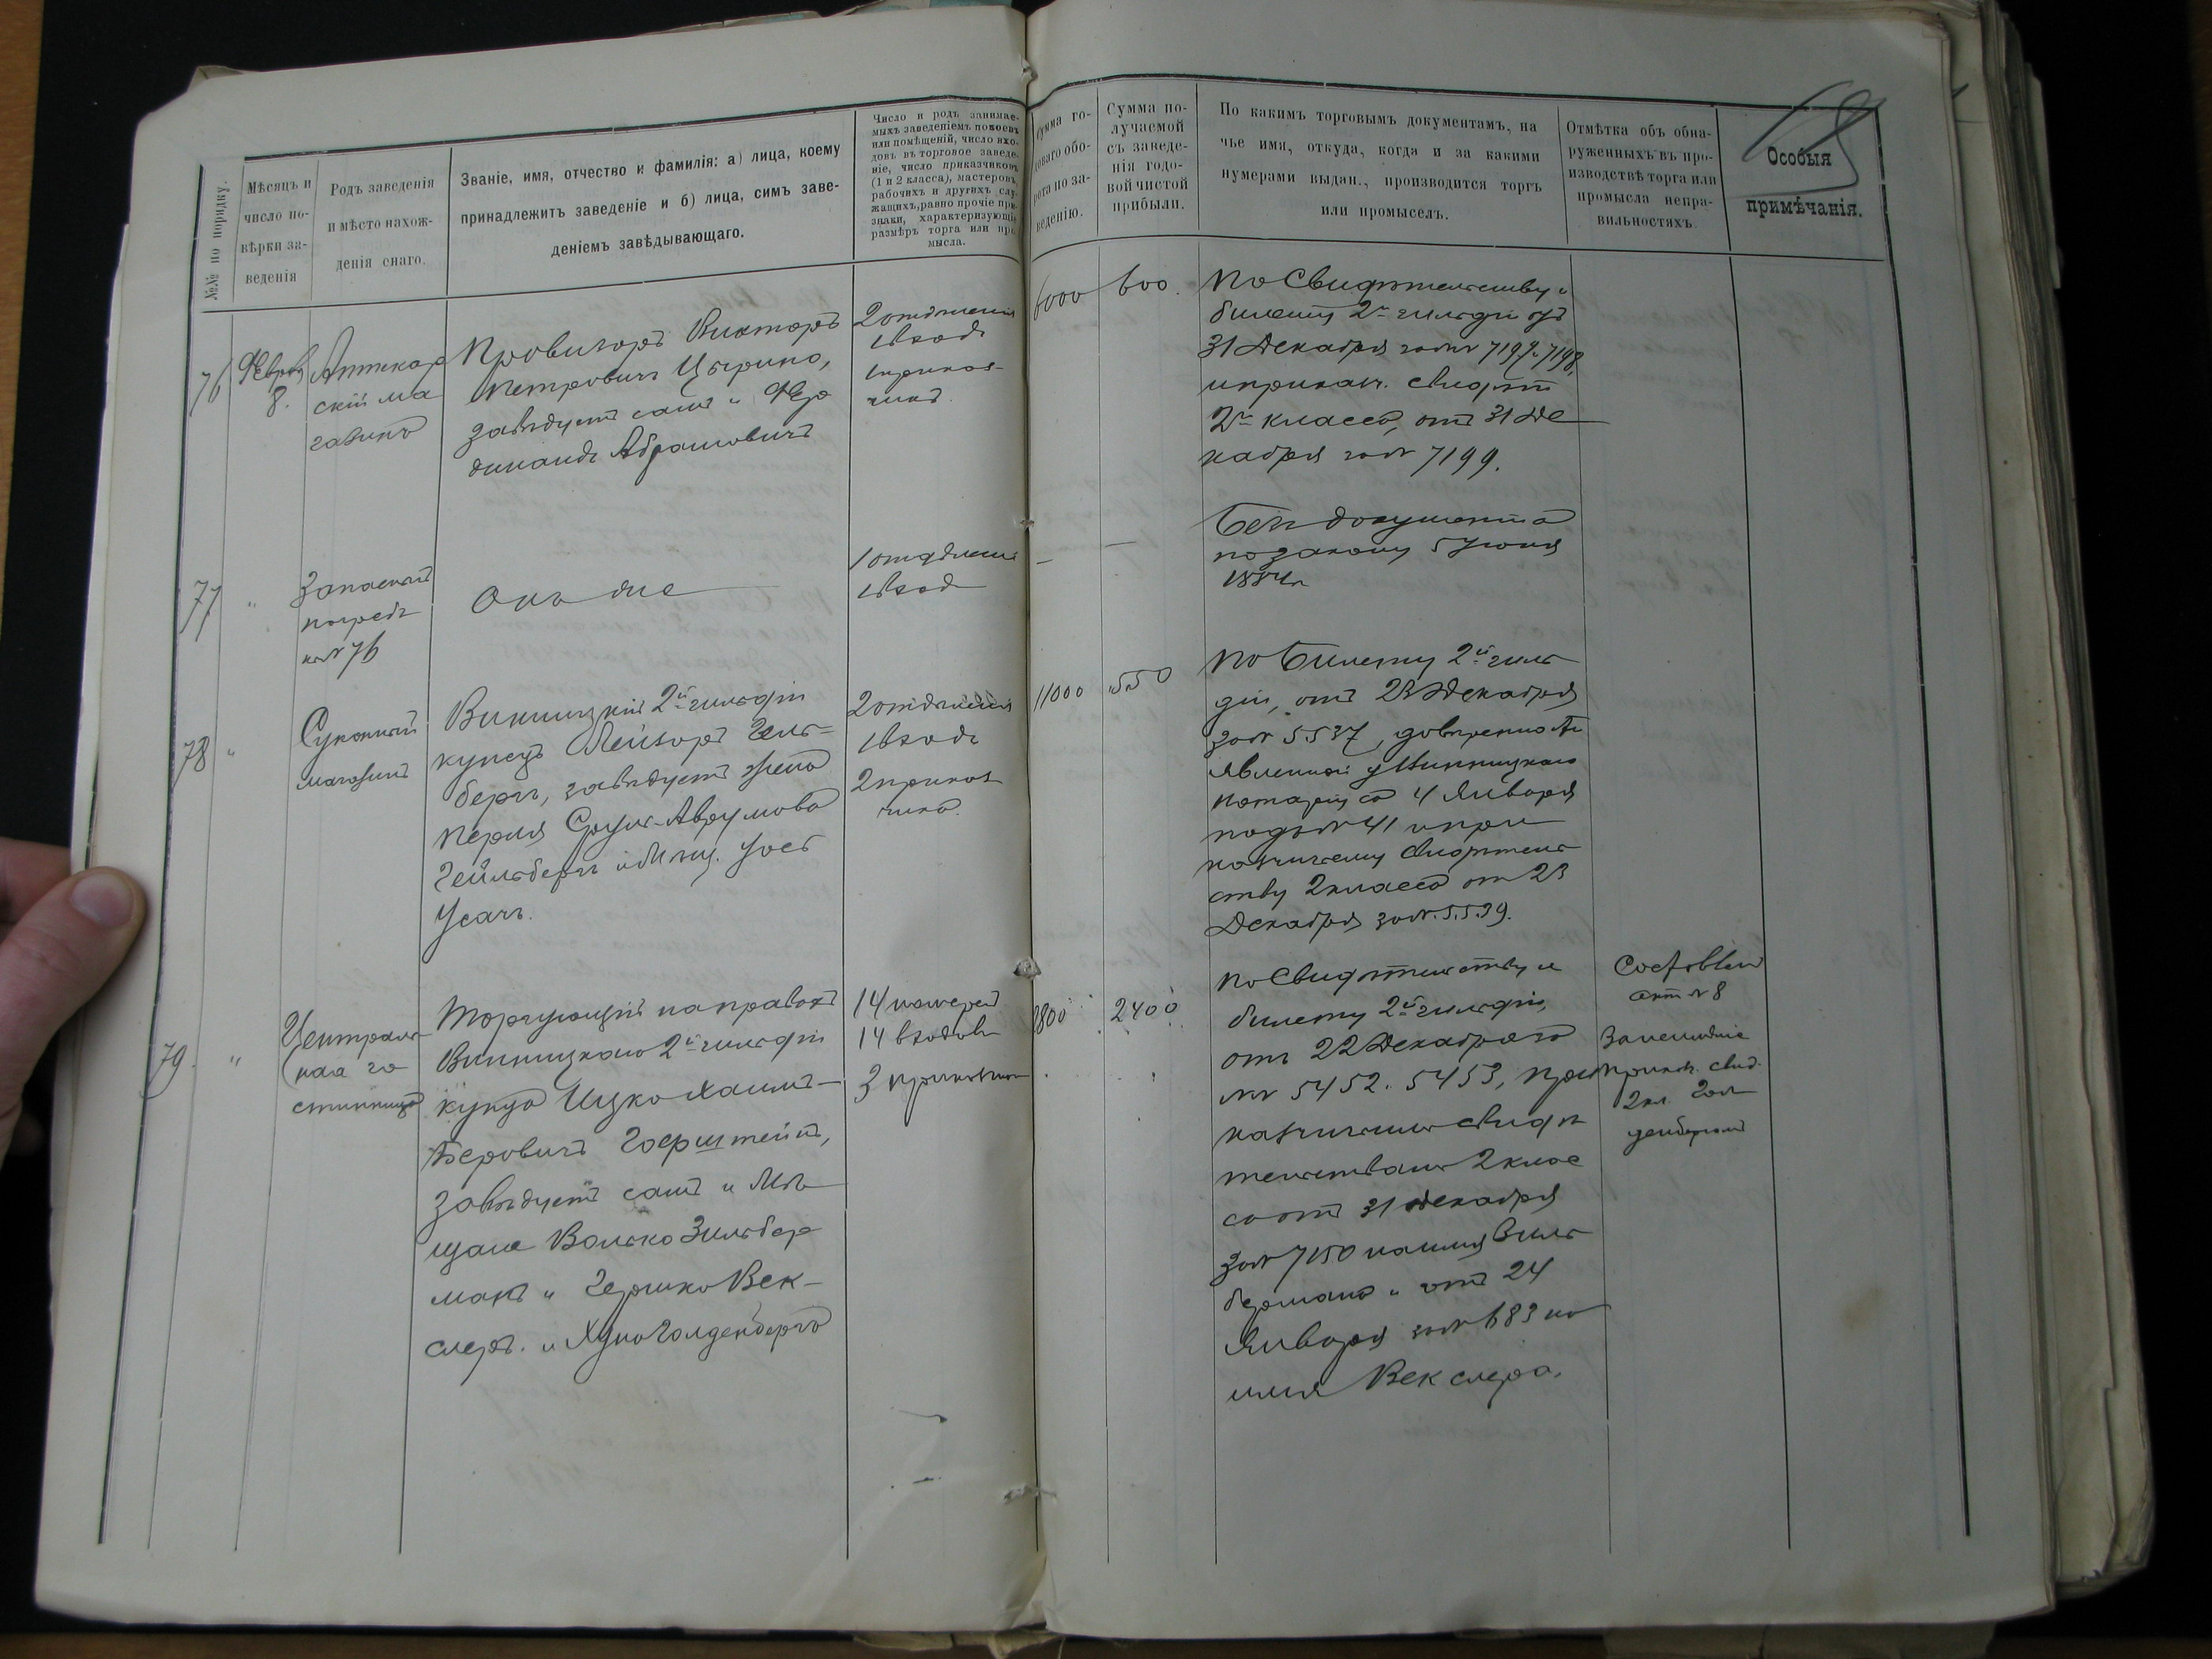 №№ по порядку.
Мѣсяцъ и
число по-
вѣрки за-
веденія
Родъ заведенія
и мѣсто нахож-
денія онаго.
Званіе, имя, отчество и фамилія: а) лица, коему
принадлежитъ заведеніе и б) лица, симъ заве-
деніемъ завѣдывающаго.
Число и родъ занимае-
мыхъ заведеніемъ покоевъ
или помѣщеній, число вхо-
довъ въ торговое заведе-
ніе, число приказчиковъ
(1 и 2 класса), мастеровъ,
рабочихъ и другихъ слу-
жащихъ, равно прочіе при-
знаки, характеризующіе
размѣръ торга или про-
мысла.
Сумма го-
доваго обо-
рота по за-
веденію.
Сумма по-
лучаемой
съ заведе-
нія годо-
вой чистой
прибыли.
По какимъ торговымъ документамъ, на
чье имя, откуда, когда и за какими
нумерами выдан., производится торгъ
или промыселъ.
Отмѣтка объ обна-
руженныхъ въ про-
изводствѣ торга или
промысла непра-
вильностяхъ
Особыя
примѣчанія.
76
8.
Аптекар
скій ма
газинъ
Провизоръ Викторъ
Петровичъ Цырино,
завѣдуетъ самъ и Фер
динандъ Абрамовичъ
2 отдѣленія
1 входъ
1 приказ-
чикъ
6000
600.
По Свидѣтельству и
билету 2й гильдіи отъ
31 Декабря за №№ 7197. 7198,
и приказч. свидѣт
2го класса, отъ 31 Де
кабря за № 7199.
77
"
Запасный
погребъ
къ № 76
Онъ же
1 отдѣленіе
1 входъ
—
—
Безъ документа
по закону 5 Іюня
1884 г.
78
"
Суконный
магазинъ
Винницкій 2й гильдіи
купецъ Лейзоръ Гель-
бергъ, завѣдуетъ жена
Перля Сруль-Аврумова
Гейльбергъ и Мѣщ. Іосъ
Усачъ.
2 отдѣленія
1 входъ
2 приказ
чика.
11000
550
По Билету 2й гиль
діи, отъ 23 Декабря
за № 5537, довѣренности
явленной у Винницкаго
Нотаріуса 4 Января
подъ № 41 и при
казчичьему свидѣтель
ству 2 класса отъ 23
Декабря за №. 5539.
79.
"
Централь
ная го
стинница
Торгующій на правахъ
Винницкаго 2й гильдіи
купца Ицко Хаимъ-
Беровичъ Гофштейнъ,
завѣдуетъ самъ и Мѣ
щане Волько Зильбер
манъ и Гершко Век-
слеръ. и Хуно Голденбергъ
14 номеровъ
14 входовъ
3 приказчика
2400
По Свидѣтельству и
билету 2й гильдіи,
отъ 22 Декабря за
№№ 5452. 5453, при
казчичьимъ свидѣ
тельствамъ 2 клас
са отъ 31 Декабря
за № 7150 на имя Зиль
бермана и отъ 24
Января за № 683 на
имя Векслера.
Составленъ
актъ № 8
За неимѣніе
приказч. свид.
2 кл. Гол
денбергомъ